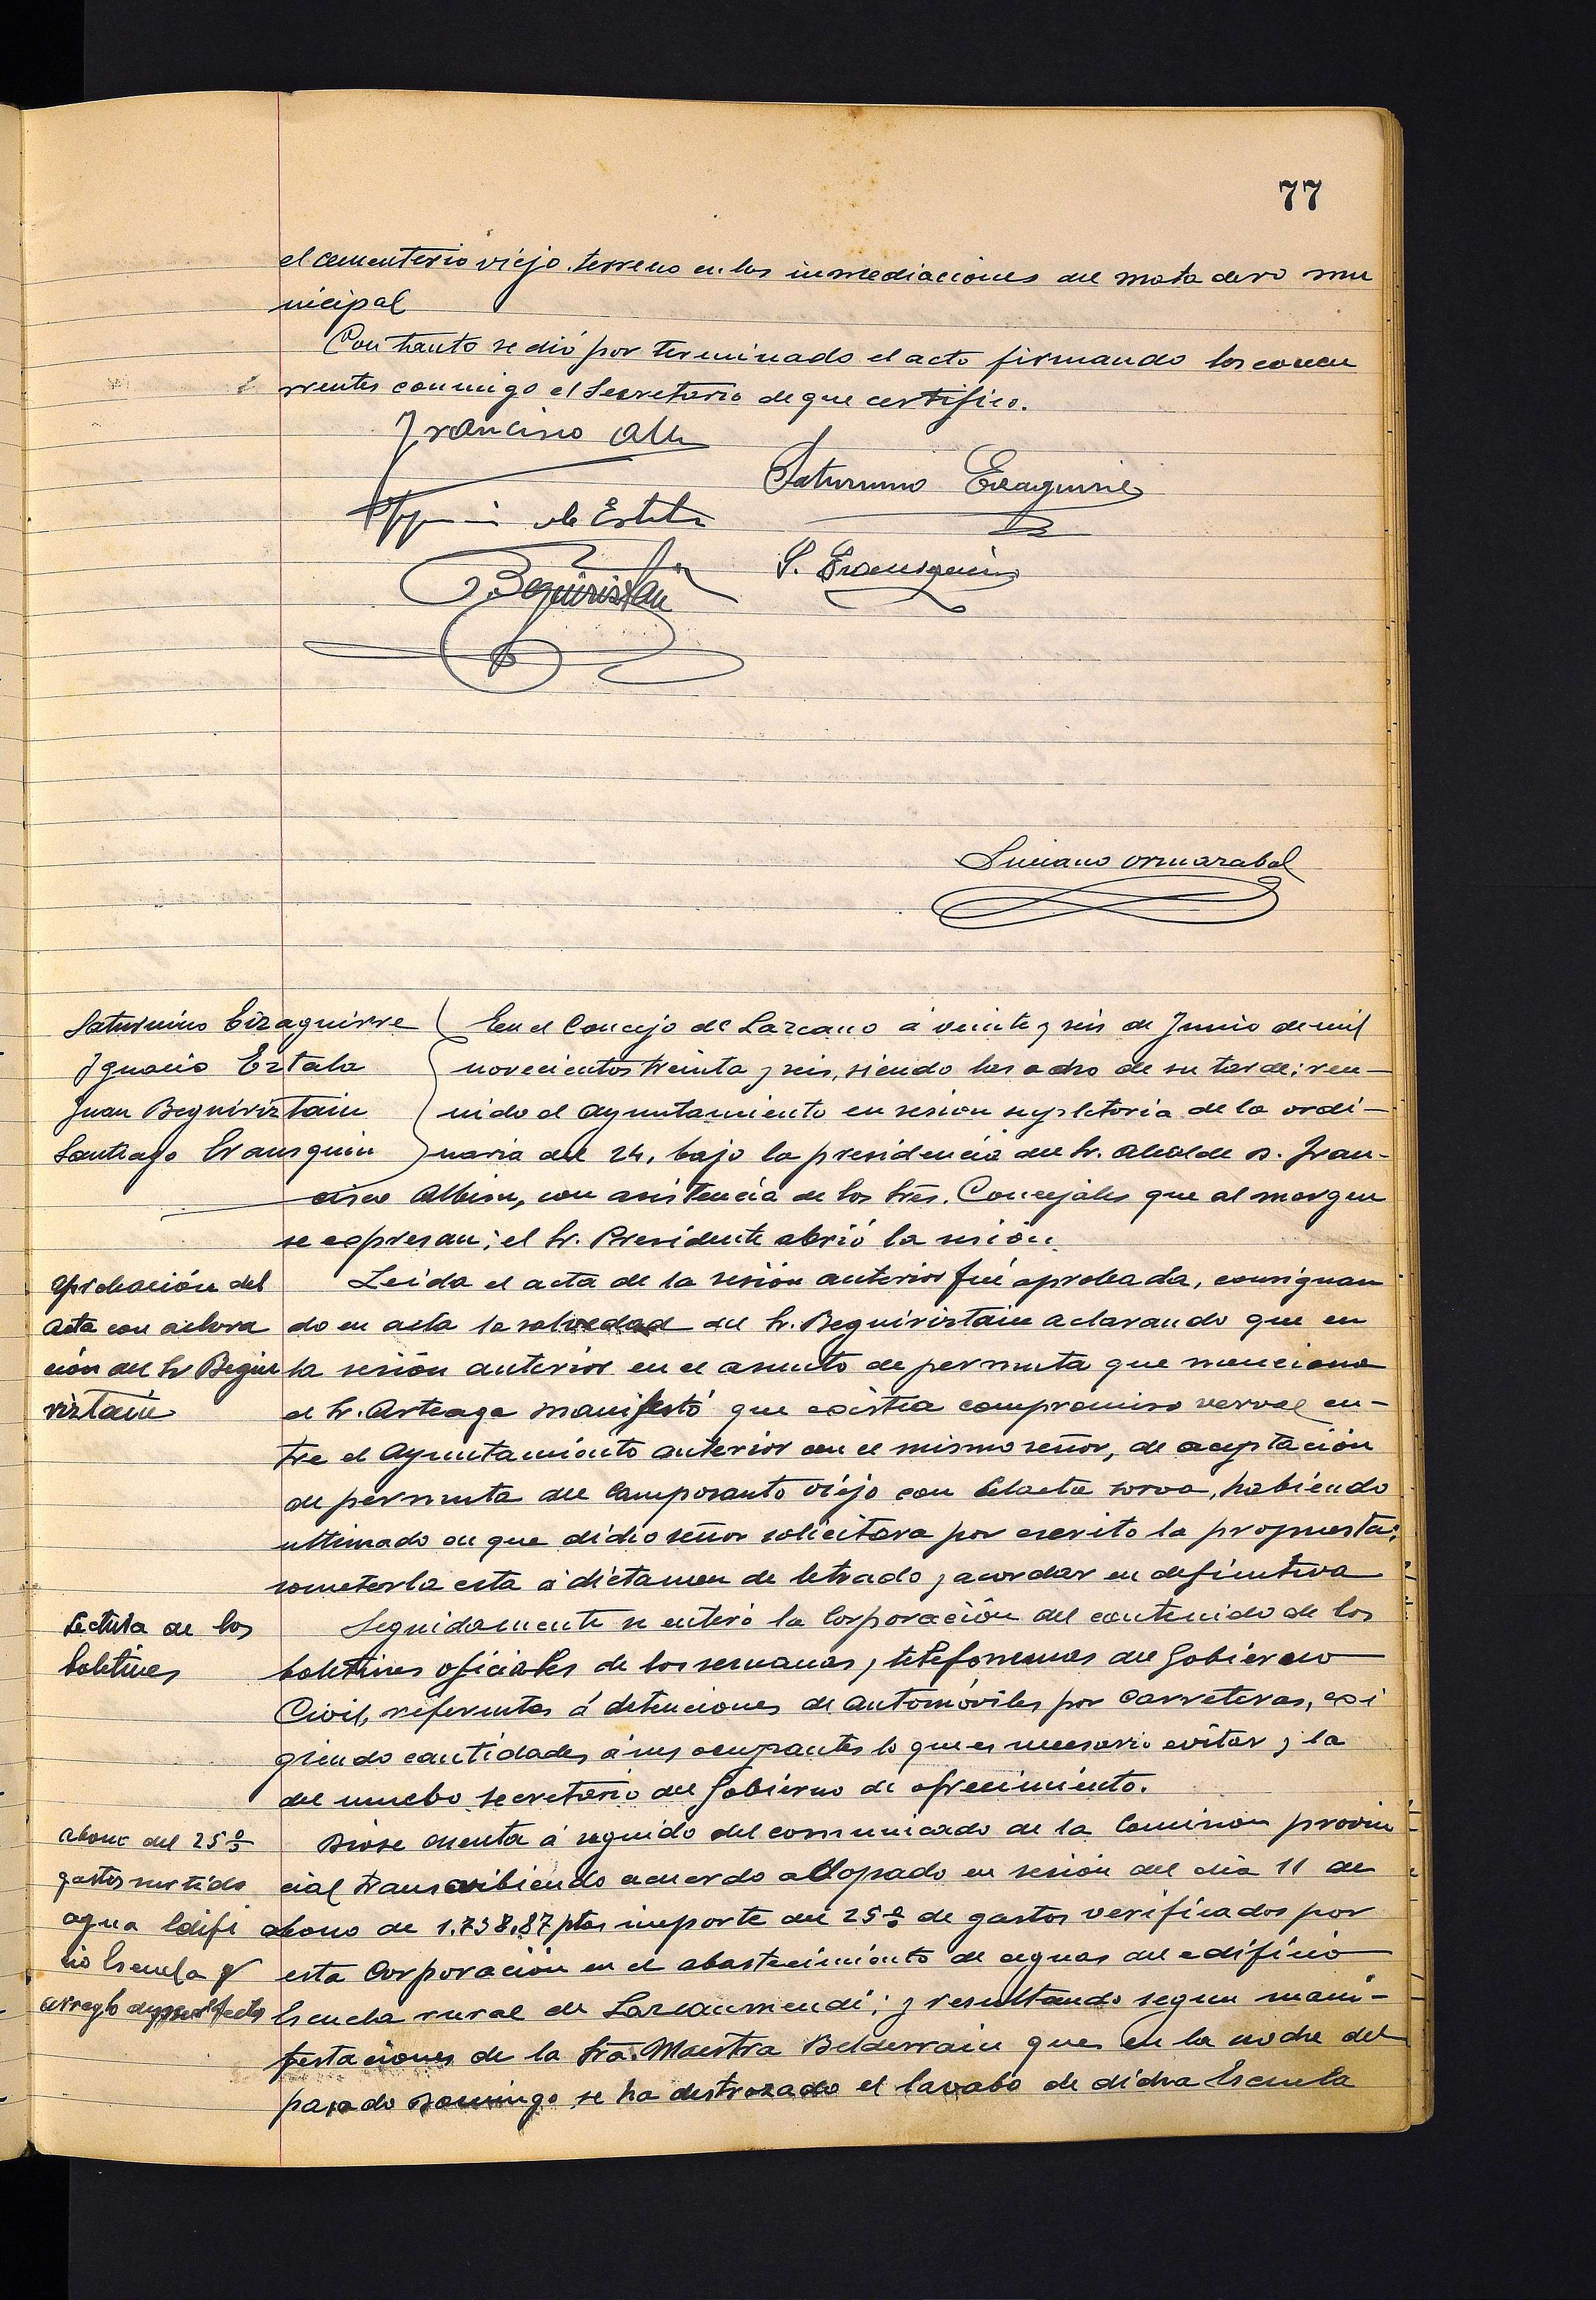 77
el cementerio viejo. terreno en los inmediaciones del mata dero mu
nicipal
Con tanto se dió por terminado el acto firmando los concu
rrentes conmigo el Secretario de que certifico.
Francisco Alb
Saturnino Eizaguirre
de Estala
S. Erausquin
Beguiristain
Luciano Ormazabal
Saturnino Eizaguirre
Ignacio Eztala
Juan Beguiriztain
Santiago Erausquin
En el Concejo de Lazcano á veinte y seis de Junio de mil
novecientos treinta y seis, siendo las ocho de su tarde: reu-
nido el Ayuntamiento en sesion supletoria de la ordi-
naria del 24, bajo la presidencia del Sr. Alcalde D. Fran-
cisco Albisu, con asistencia de los Sres. Concejales que al margen
se expresan; el Sr. Presidente abrió la sesión.
Aprobación del
Acta con aclara
ción del Sr Begui
riztain
Leida el acta de la sesión anterior fué aprobada, consignan
do en acta la salvedad del Sr. Beguiriztain aclarando que en
la sesión anterior en el asunto de permuta que menciona
el Sr. Arteaga manifestó que existia compromiso verval en-
tre el Ayuntamiento anterior con el mismo señor, de aceptación
de permuta del Camposanto viejo con soroa, habiendo
ultimado en que dicho señor solicitara por escrito la propuesta:
someterla esta á dictamen de letrado y acordar en definitiva
Lectura de los
boletines
Seguidamente se enteró la Corporación del contenido de los
boletines oficiales de los semanas y telefonemas del Gobierno
Civil, referentes á detenciones de automóviles por carreteras, exi
giendo cantidades á sus ocupantes lo que es necesario evitar y la
del nuebo secretario del Gobierno de ofrecimiento.
Abono del 25%
gastos surtido
agua Edifi
cio Escuela y
arreglo desperfectos
Dióse cuenta á seguido del comunicado de la Comision provin
cial transcribiendo acuerdo adopado en sesión del dia 11 de
abono de 1.738,87 ptas importe del 25% de gastos verificados por
esta Corporación en el abastecimiento de aguas del edificio
Escuela rural de Lazcaumendi; y resultando segun mani-
festaciones de la Sra. Maestra Belderrain que en la noche del
pasado Domingo se ha destrozado el lavabo de dicha Escuela